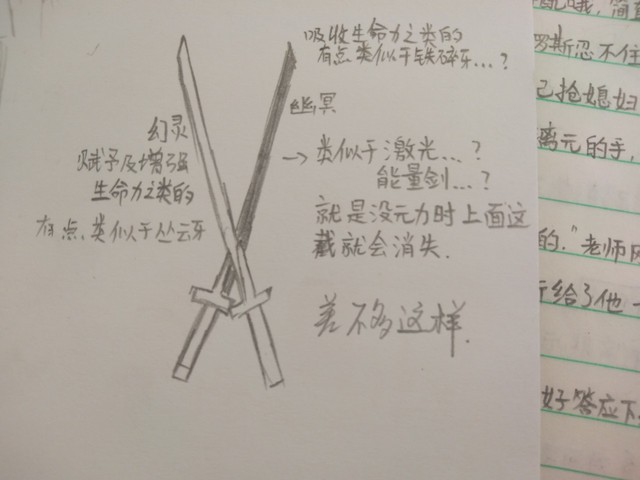 吸收生命力之类的
有点类似于铁碎牙...？
幽冥
幻灵
赋予及增强
生命力之类的
有点类似于丛云牙
→类似于激光...？
能量剑...？
就是没元力时上面这
截就会消失.
差不多这样.
罗斯忍不住
己抢媳妇
离元的手,
的."老师
给了他一
好答应下